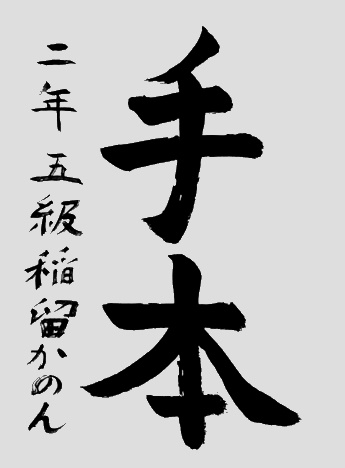 手本
二年 五級 稲留かのん